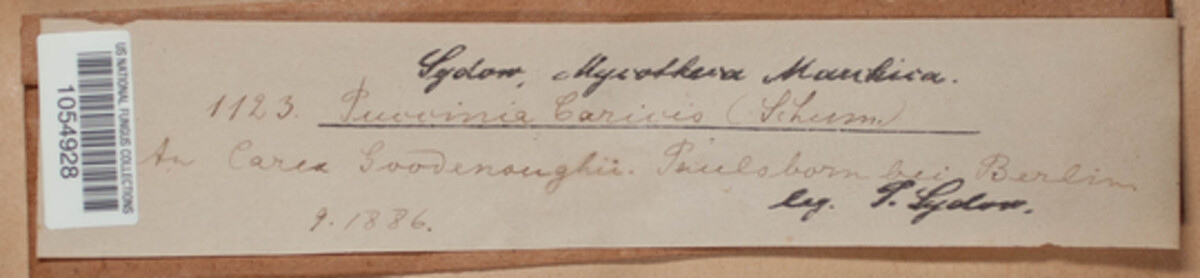 US NATIONAL FUNGUS COLLECTIONS
1054928
Sydow, Mycotheca Marchica.
1123. Puccinia Caricis (Schum.)
An Carex Goodenoughii. Paulsborn bei Berlin
leg. P. Sydow.
9. 1886.